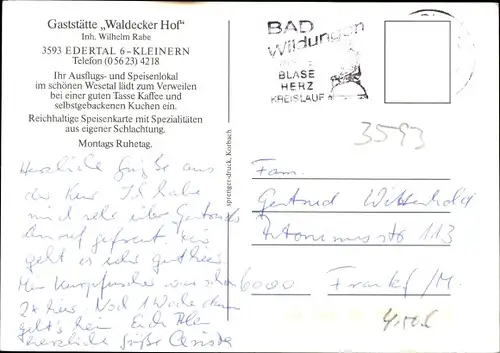 Gaststätte „Waldecker Hof"
Inh. Wilhelm Rabe
3593 EDERTAL 6-KLEINERN
Telefon (0 56 23) 4218
Ihr Ausflugs- und Speisenlokal
im schönen Wesetal lädt zum Verweilen
bei einer guten Tasse Kaffee und
selbstgebackenen Kuchen ein.
Reichhaltige Speisenkarte mit Spezialitäten
aus eigener Schlachtung.
Montags Ruhetag.
Herzliche Grüße aus
der Kur. Ich habe
mich sehr über Gertruds
Anruf gefreut. Mir
geht es sehr gut hier.
Mein war schon
2x hier. Noch 1 Woche dann
geht's heim. Euch Allen
herzliche Grüße Christa
sprenger-druck, Korbach
BAD
Wildungen
BLASE
HERZ
KREISLAUF
3593
Fam.
Gertrud
113
6000 Frankf/M.